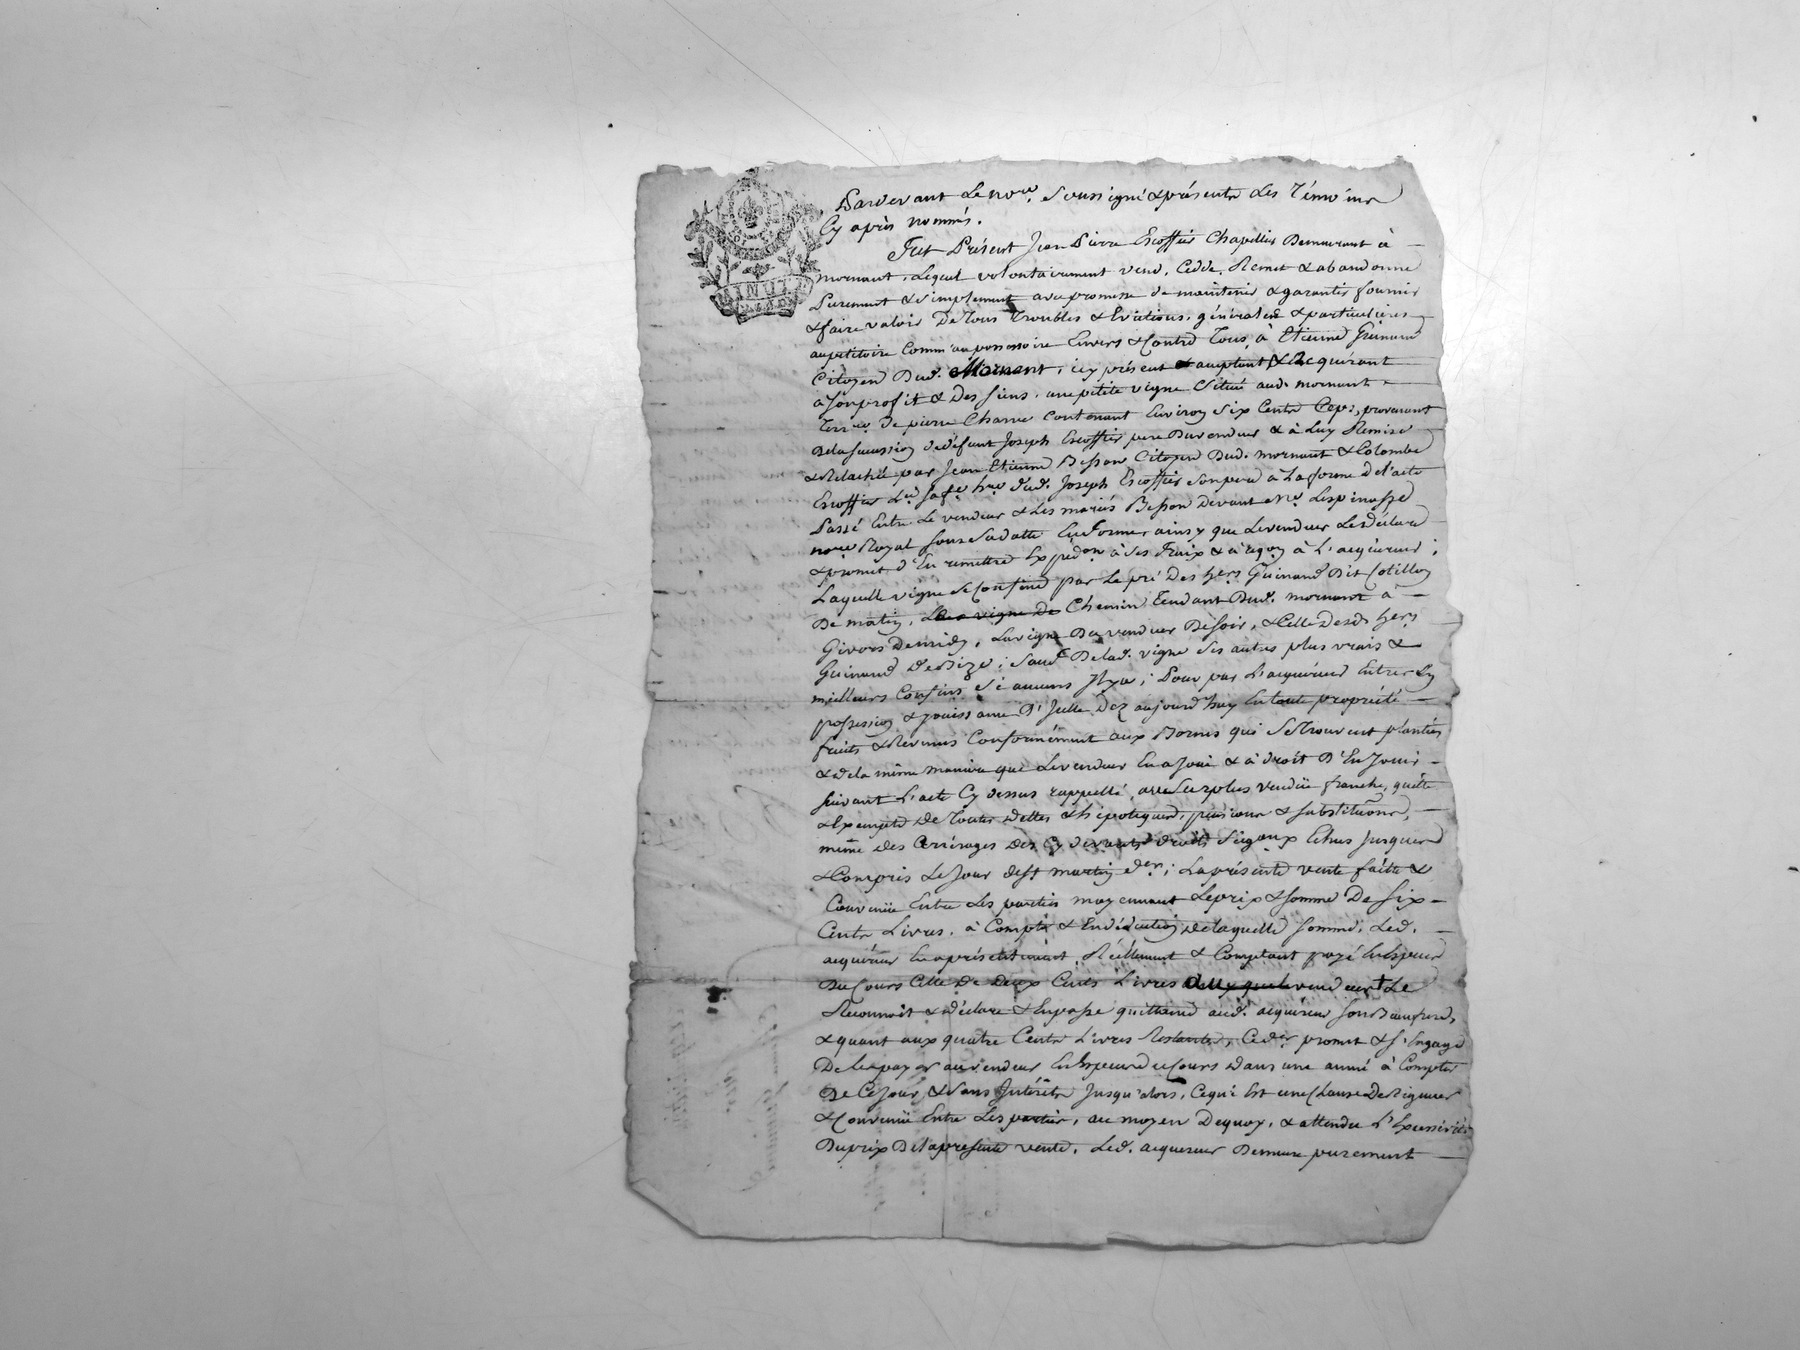 MINUTE
Pardevant Le nore. soussigné & présents Les Témoins
Cy après nommés.
Fut Présent Jean Pierre Escoffier Chapellier Demeurant à
mornant, Lequel volontairement vend, Cedde, Remet & abandonne
Purement & simplement avec promesse de maintenir & garantir fournir
& faire valoir De Tous Troubles & Evictions, générales & particulières
au petitoire Comm'au possessoire Envers & Contre Tous, à Etienne Guinand
Citoyen Dud. Mornant, icy présent acceptant & acquérant
a son profit & des siens, une petite vigne Située aud. mornant
de pierre Charve Contenant Environ Six Cents Ceps, provenant
Dela succession de défunt Joseph Escoffier pere Du vendeur & à Luy Remise
& Relachée par Jean Etienne Besson Citoyen Dud. mornant & Colombe
Escoffier sa fe. dud. Joseph Escoffier son pere à La forme de l'acte
Passé Entre Le vendeur & Les mariés Besson Devant Me. Lespinasse
nore Royal sous sa datte En forme ainsy que Le vendeur Le déclare
& promet d'En remettre Expédon à ses fraix à L'acquéreur;
Laquelle vigne se Confine par Le pré Des hers Guinand Dit Cotillon
De matin, Chemin Tendant Dud. mornant à
Givors De midy, La vigne Du vendeur De soir, & Celle Desds hers
Guinand De Bize; sauf De lad. vigne ses autres plus vrais &
meilleurs Confins si aucuns Il y a; Pour par L'acquéreur Entrer En
possession & jouissance D'Icelle Dez aujourd'huy En toute propriété
fruits & Revenus Conformément aux Bornes qui se trouvent plantées
& dela même maniere que Le vendeur En a Joui & a droit D'En Jouir
suivant L'acte Cy dessus rappellé, au surplus vendüe franche, quitte
& Exempte de Toutes dettes & hipoteques, pensions & substitutions,
même des arrérages des Cy devant droits Seigaux Echus Jusques
& Compris Le Jour de St martin der; La présente vente faite &
Convenüe Entre Les parties moyennant Le prix & somme De Six
Cents Livres, à Compte & En déduction de laquelle somme, Led.
acquéreur En a présentement Réellement & Comptant payé En Espèces
Du Cours Celle De Deux Cents Livres vendeur Le
Reconnoit & déclare & En passe quittance aud. acquéreur son Beaufrere,
& quant aux quatre Cents Livres Restantes, Ceder promet & s'Engage
De Les payer au vendeur En Espèces du Cours dans une année à Compter
De Ce Jour, & sans Intérêts Jusqu'alors, Ce qui Est une Clause De rigueur
& Convenüe Entre Les parties, au moyen De quoy, & attendu L'
Du prix De la présente vente, Led. acquereur Demeure purement